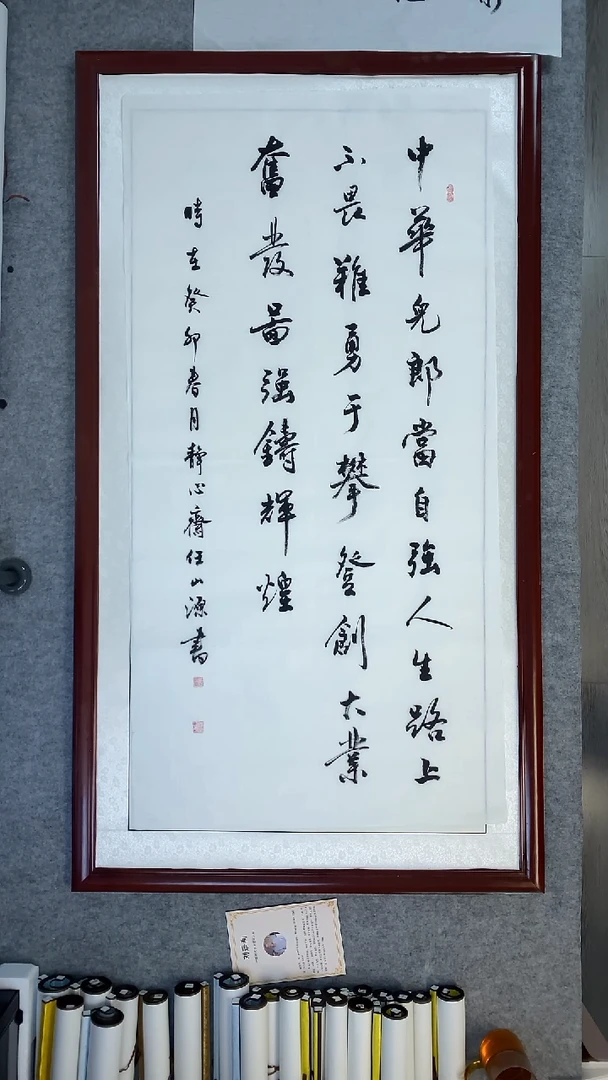 中華兒郎當自強人生路上
不畏難勇于攀登創大業
奮發啚强鑄輝煌
時在癸卯春月靜心齋任山源書